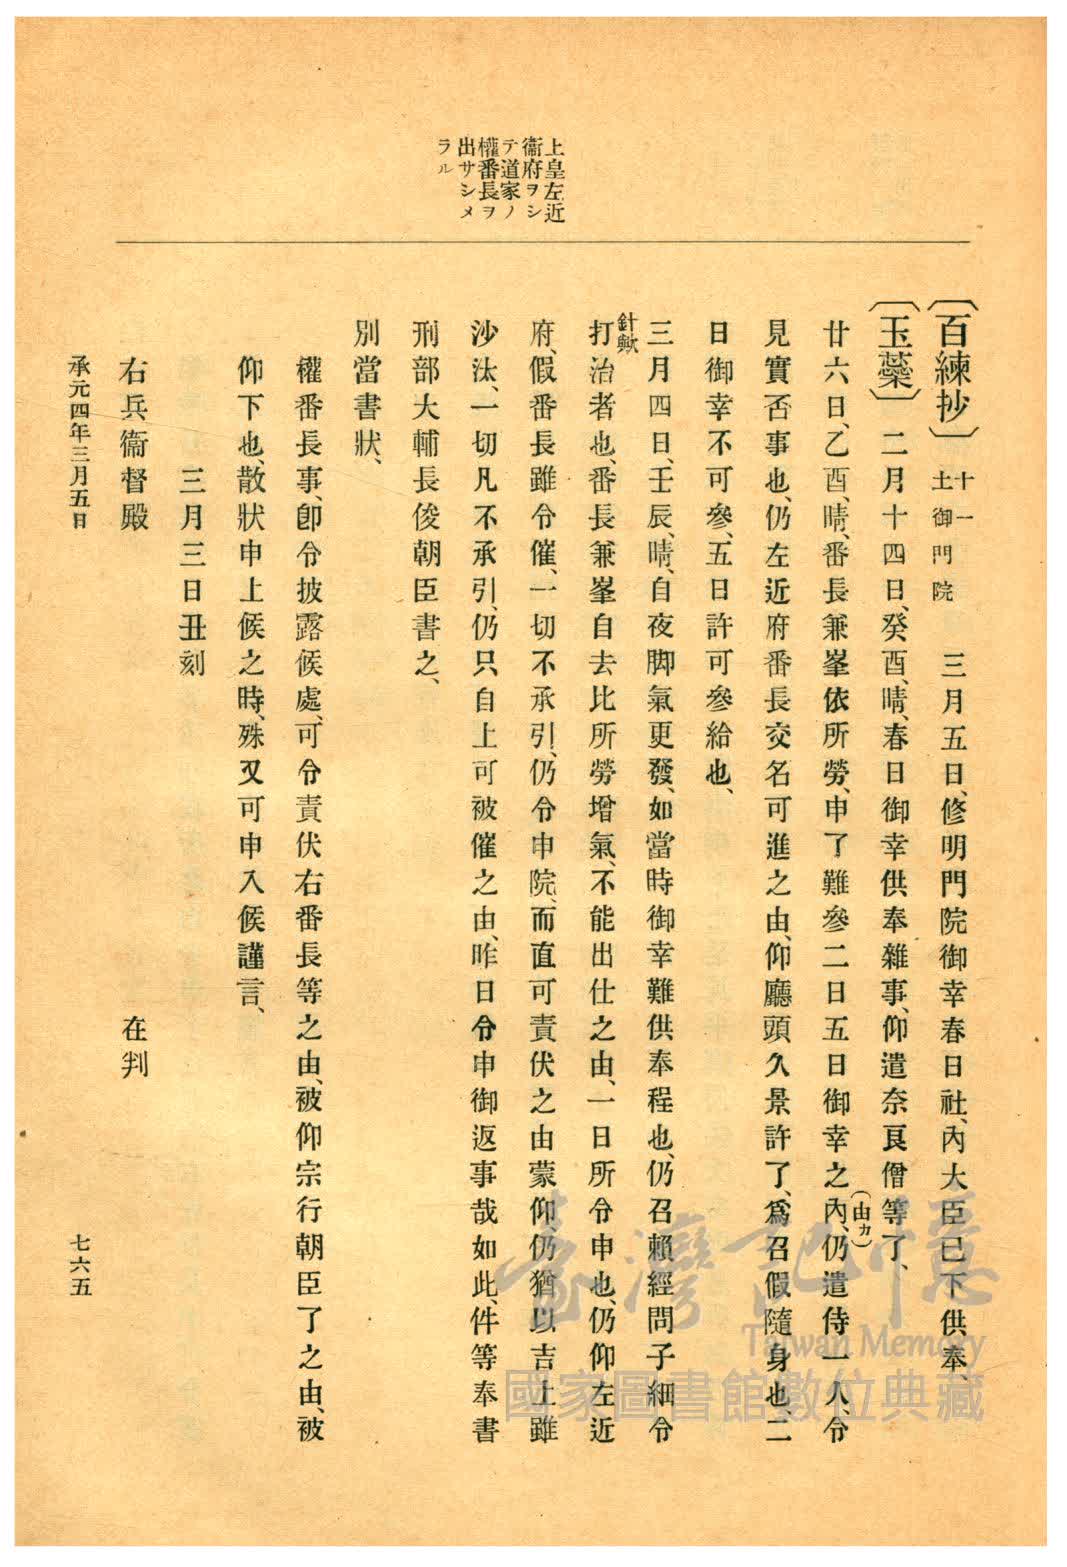 上皇左近
衞府ヲシ
テ道家ノ
權番長ヲ
出サシメ
ラル
〔百練抄〕十一土御門院 三月五日、修明門院御幸春日社、內大臣已下供奉、
〔玉蘂〕二月十四日、癸酉、晴、春日御幸供奉雜事、仰遣奈良僧等了、
廿六日、乙酉、晴、番長兼峯依所勞、申了難參二日五日御幸之內、(由カ)仍遣侍一人、令
見實否事也、仍左近府番長交名可進之由、仰廳頭久景許了、爲召假隨身也、二
日御幸不可參、五日許可參給也、
三月四日、壬辰、晴、自夜脚氣更發、如當時御幸難供奉程也、仍召賴經問子細令
打針歟治者也、番長兼峯自去比所勞增氣、不能出仕之由、一日所令申也、仍仰左近
府、假番長雖令催、一切不承引、仍令申院、而直可責伏之由蒙仰、仍猶以吉上雖
沙汰、一切凡不承引、仍只自上可被催之由、昨日令申御返事哉如此、件等奉書
刑部大輔長俊朝臣書之、
別當書狀、
權番長事、卽令披露候處、可令責伏右番長等之由、被仰宗行朝臣了之由、被
仰下也、散狀申上候之時、殊又可申入候謹言、
三月三日丑刻
右兵衞督殿 在判
承元四年三月五日
七六五
臺灣記憶
Taiwan Memory
國家圖書館數位典藏